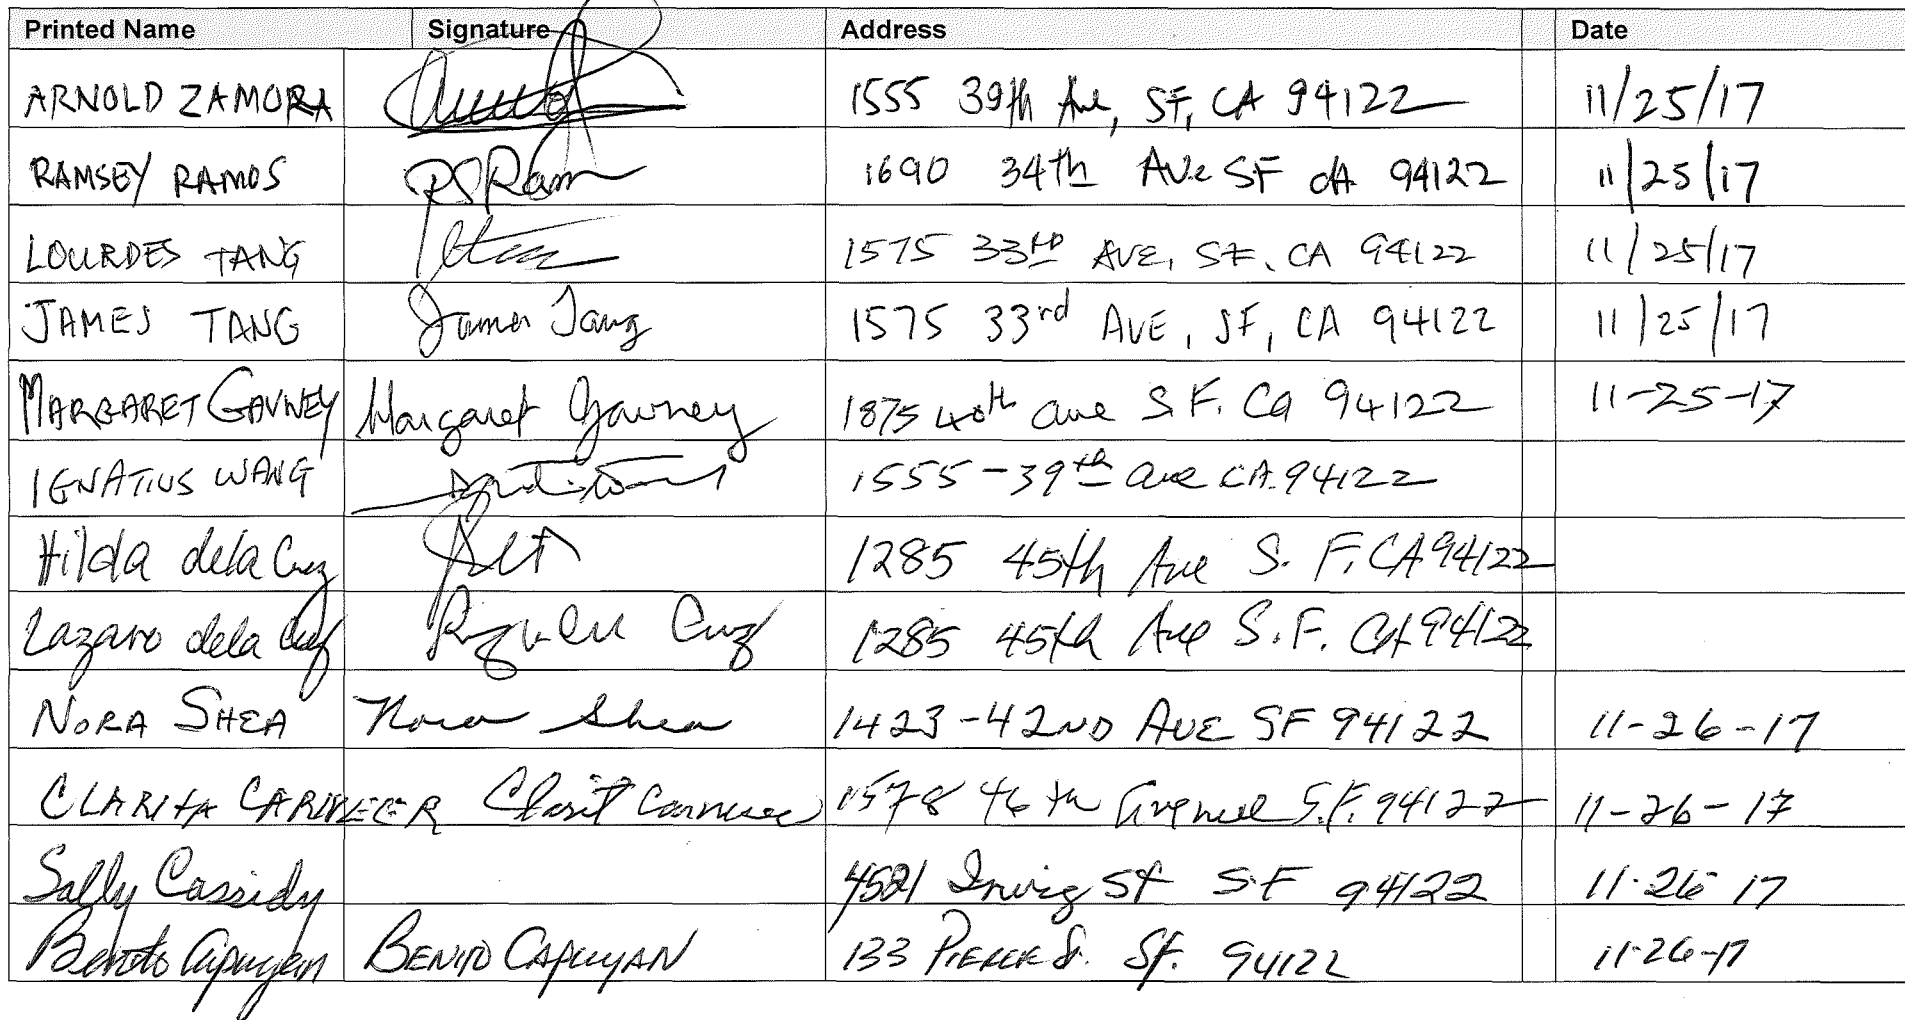 Printed Name Signature Address Date
ARNOLD ZAMORA 1555 39th Ave, SF, CA 94122 11/25/17
RAMSEY RAMOS RSRam 1690 34th AVe SF CA 94122 11/25/17
LOURDES TANG 1575 33RD AVE, SF, CA 94122 11/25/17
JAMES TANG James Tang 1575 33rd AVE, SF, CA 94122 11/25/17
MARGARET GAVNEY Margaret Gavney 1875 40th ave S.F. Ca 94122 11-25-17
IGNATIUS WANG 1555-39th ave CA. 94122
Hilda dela Cruz 1285 45th Ave S. F. CA 94122
Lazaro dela Cruz Cruz 1285 45th Ave S.F. CA 94122
NORA SHEA Nora Shea 1423-42ND AVE SF 94122 11-26-17
CLARITA 1578 46th Avenue S.F. 94122 11-26-17
Sally Cassidy 4521 Irving St SF 94122 11-26-17
Benito Capuyan BENITO CAPUYAN 133 PIERCE St. SF. 94122 11-26-17